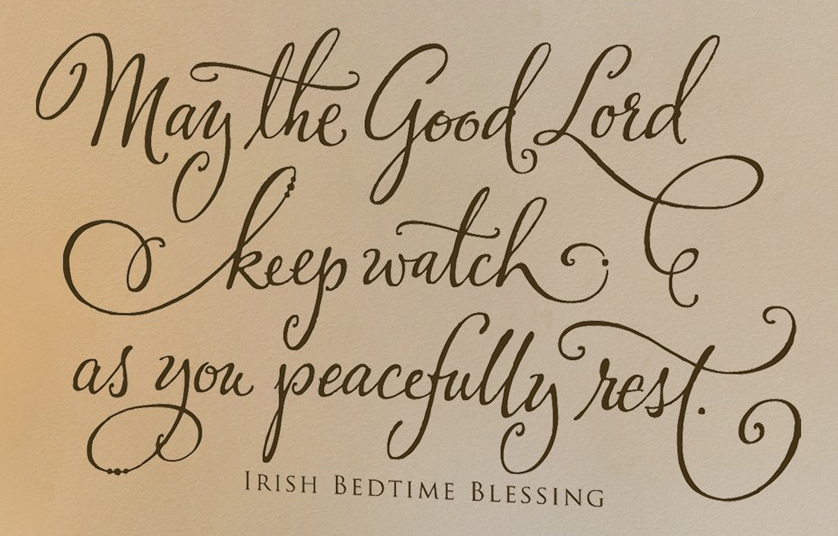 May the Good Lord
keep watch
as you peacefully rest.
Irish Bedtime Blessing